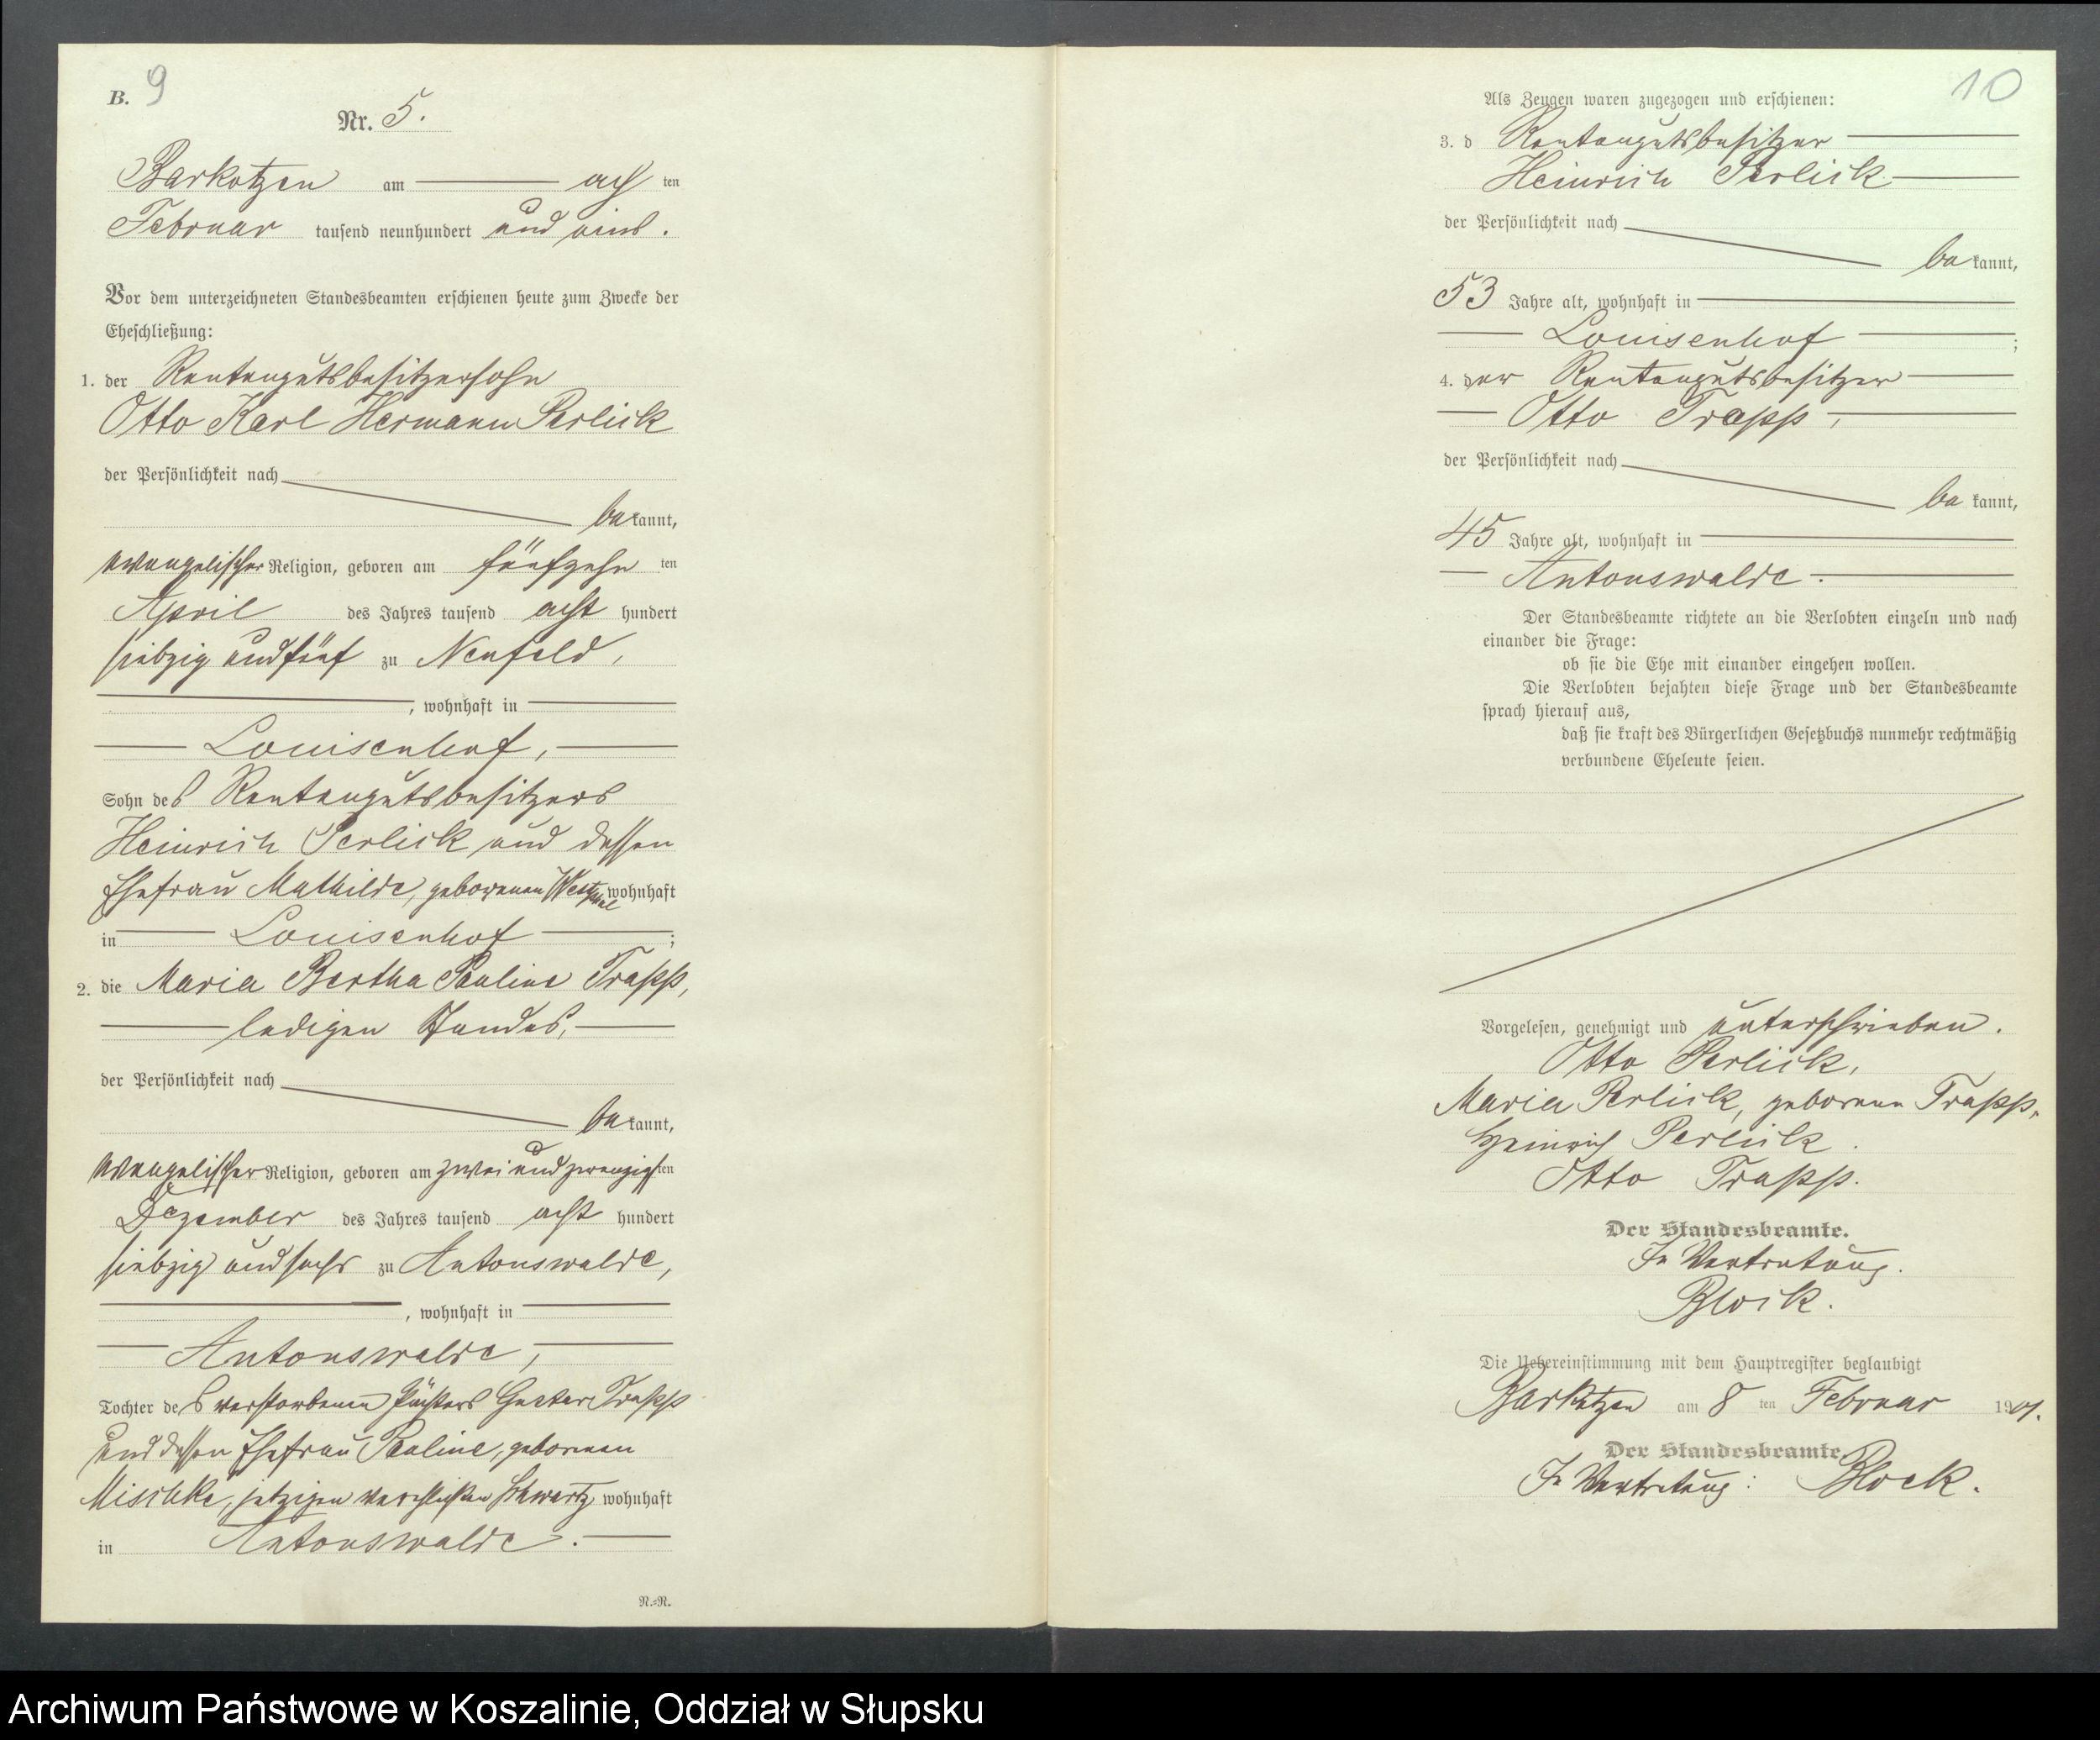 B. 9
Nr. 5.
Barkotzen am acht ten
Februar tausend neunhundert und eins.
Vor dem unterzeichneten Standesbeamten erschienen heute zum Zwecke der
Eheschließung:
1. der Rentengutsbesitzersohn
Otto Karl Hermann Perlick
der Persönlichkeit nach
be kannt,
evangelischer Religion, geboren am fünfzehn ten
April des Jahres tausend acht hundert
siebzig und fünf zu Neufeld,
, wohnhaft in
Louisenhof,
Sohn des Rentengutsbesitzers
Heinrich Perlick und dessen
Ehefrau Mathilde, geborenen Westphal wohnhaft
in Louisenhof ;
2. die Maria Bertha Pauline Trapp,
ledigen Standes,
der Persönlichkeit nach
be kannt,
evangelischer Religion, geboren am zwei und zwanzigsten
Dezember des Jahres tausend acht hundert
siebzig und sechs zu Antonswalde,
, wohnhaft in
Antonswalde,
Tochter des verstorbenen Pächters Gustav Trapp
und dessen Ehefrau Pauline, geborenen
Mischke, jetzigen verehelichten Schwartz wohnhaft
in Antonswalde.
R.=R.
10
Als Zeugen waren zugezogen und erschienen:
3. d Rentengutsbesitzer
Heinrich Perlick
der Persönlichkeit nach
be kannt,
53 Jahre alt, wohnhaft in
Louisenhof ;
4. der Rentengutsbesitzer
Otto Trapp,
der Persönlichkeit nach
be kannt,
45 Jahre alt, wohnhaft in
Antonswalde.
Der Standesbeamte richtete an die Verlobten einzeln und nach
einander die Frage:
ob sie die Ehe mit einander eingehen wollen.
Die Verlobten bejahten diese Frage und der Standesbeamte
sprach hierauf aus,
daß sie kraft des Bürgerlichen Gesetzbuchs nunmehr rechtmäßig
verbundene Eheleute seien.
Vorgelesen, genehmigt und unterschrieben.
Otto Perlick,
Maria Perlick, geborene Trapp,
Heinrich Perlick.
Otto Trapp.
Der Standesbeamte.
In Vertretung.
Block.
Die Uebereinstimmung mit dem Hauptregister beglaubigt
Barkotzen am 8 ten Februar 1901.
Der Standesbeamte.
In Vertretung: Block.
Archiwum Państwowe w Koszalinie, Oddział w Słupsku